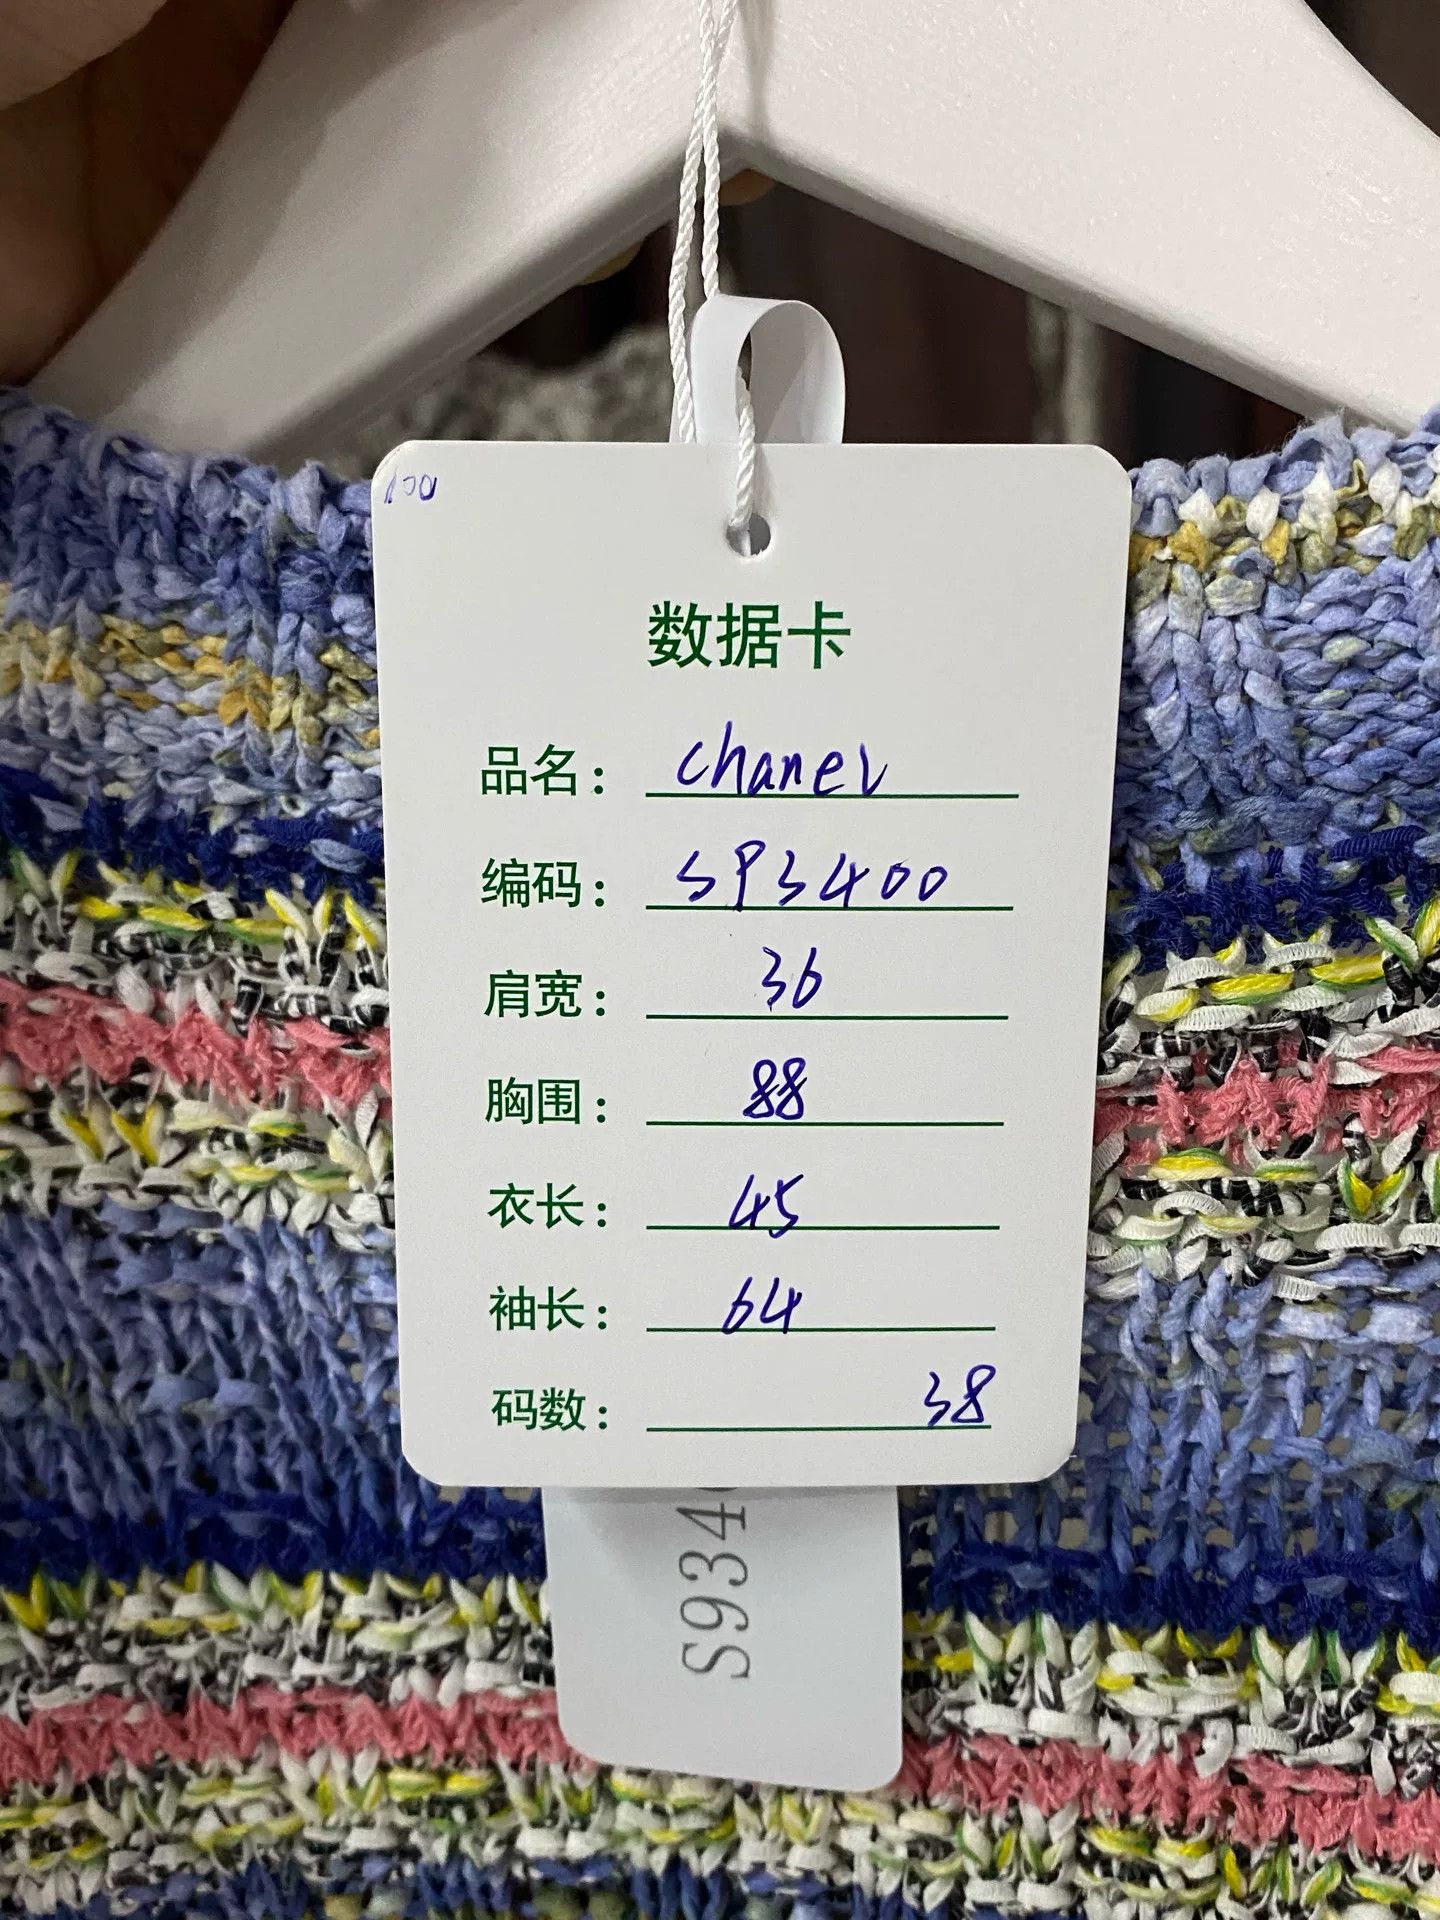 100
数据卡
品名: chanel
编码: S93400
肩宽: 36
胸围: 88
衣长: 45
袖长: 64
码数: 38
S934